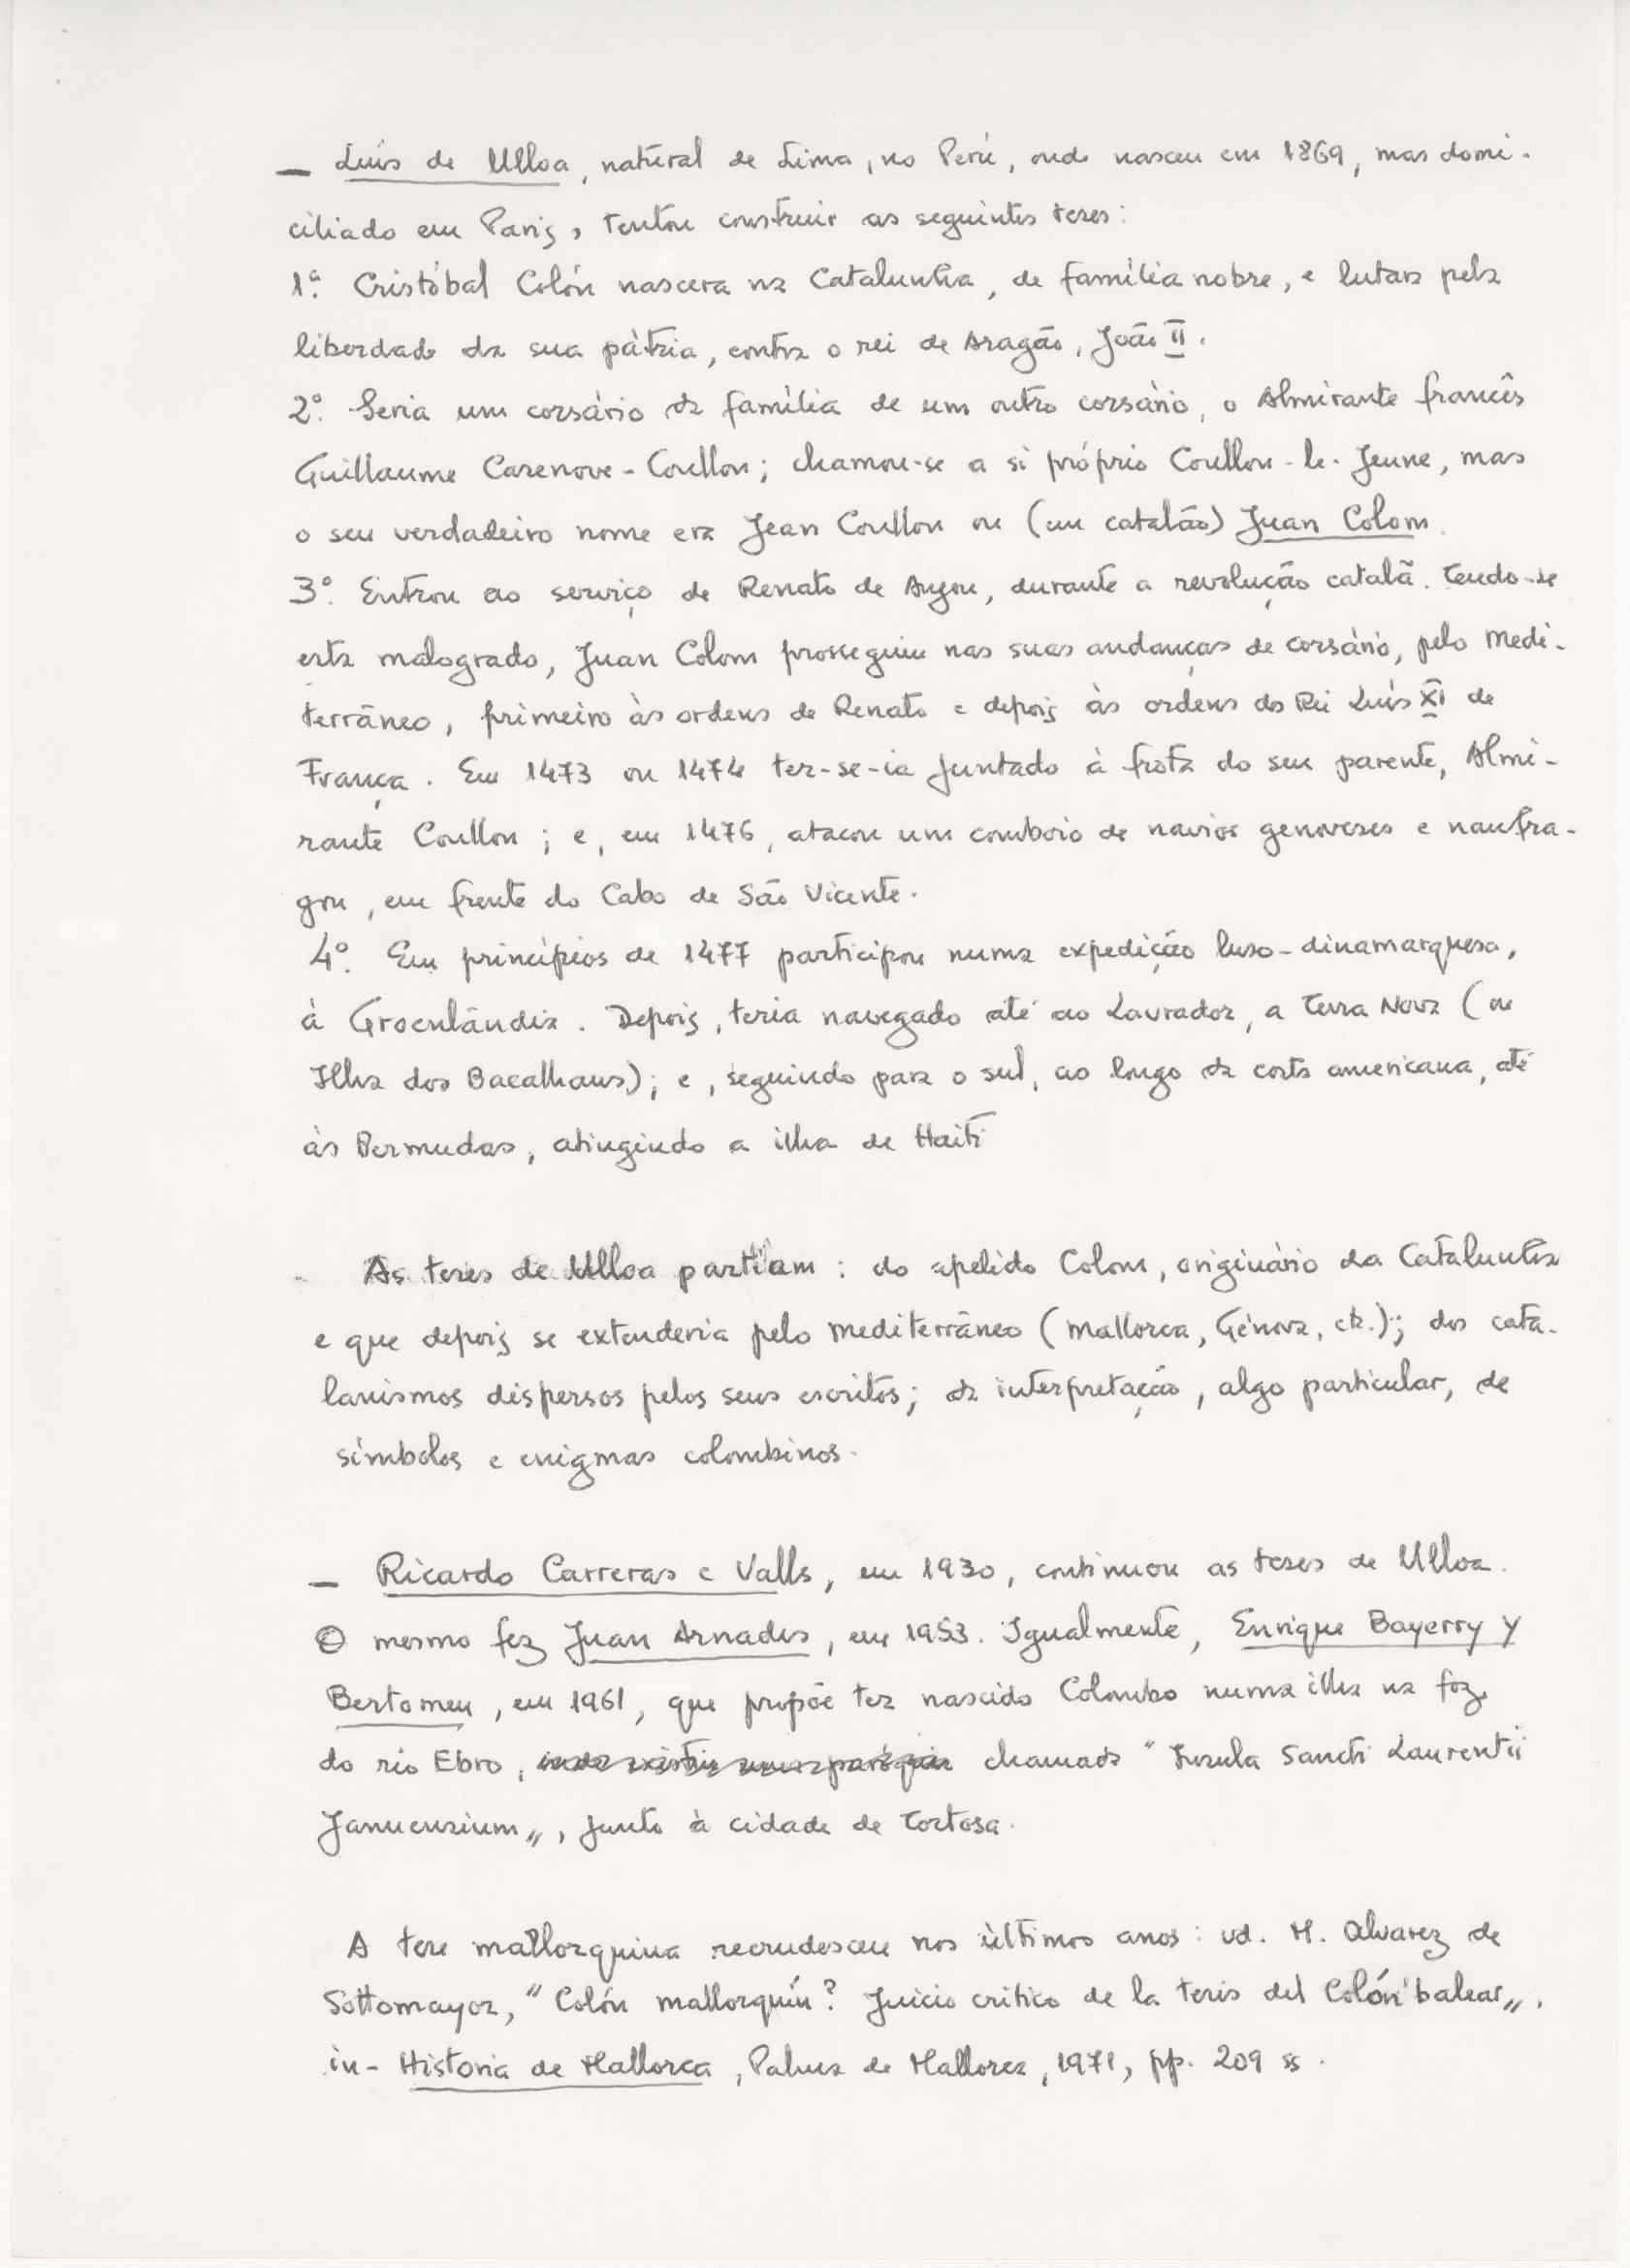 — Luís de Ulloa, natural de Lima, no Perú, onde nasceu em 1869, mas domi-
ciliado em Paris, tentou construir as seguintes teses:
1ª. Cristóbal Colón nascera na Catalunha, de família nobre, e lutara pela
liberdade da sua pátria, contra o rei de Aragão, João II.
2º. Seria um corsário da família de um outro corsário, o Almirante francês
Guillaume Casenove-Coullon; chamou-se a si próprio Coullon-le-Jeune, mas
o seu verdadeiro nome era Jean Coullon ou (em catalão) Juan Colom.
3º. Entrou ao serviço de Renato de Anjou, durante a revolução catalã. Tendo-se
esta malogrado, Juan Colom prosseguiu nas suas andanças de corsário, pelo Medi-
terrâneo, primeiro às ordens de Renato e depois às ordens do Rei Luís XI de
França. Em 1473 ou 1474 ter-se-ia juntado à frota do seu parente, Almi-
rante Coullon; e, em 1476, atacou um comboio de navios genoveses e naufra-
gou, em frente do Cabo de São Vicente.
4º. Em princípios de 1477 participou numa expedição luso-dinamarquesa,
à Groenlândia. Depois, teria navegado até ao Lavrador, a Terra Nova (ou
Ilha dos Bacalhaus); e, seguindo para o sul, ao longo da costa americana, até
às Bermudas, atingindo a ilha de Haiti
As teses de Ulloa partiam: do apelido Colom, originário da Catalunha
e que depois se extenderia pelo Mediterrâneo (Mallorca, Génova, etc.); dos cata-
lanismos dispersos pelos seus escritos; da interpretação, algo particular, de
símbolos e enigmas colombinos.
— Ricardo Carreras e Valls, em 1930, continuou as teses de Ulloa.
O mesmo fez Juan Arnades, em 1953. Igualmente, Enrique Bayerry y
Bertomeu, em 1961, que propõe ter nascido Colombo numa ilha na foz
do rio Ebro, onde existiu uma paróquia chamada "Insula Sancti Laurentii
Januensium", junto à cidade de Tortosa.
A tese mallorquina recrudesceu nos últimos anos: vd. M. Alvarez de
Sottomayor, "Colón mallorquín? Juicio critico de la tesis del Colón balear",
in- Historia de Mallorca, Palma de Mallorca, 1971, pp. 209 ss.